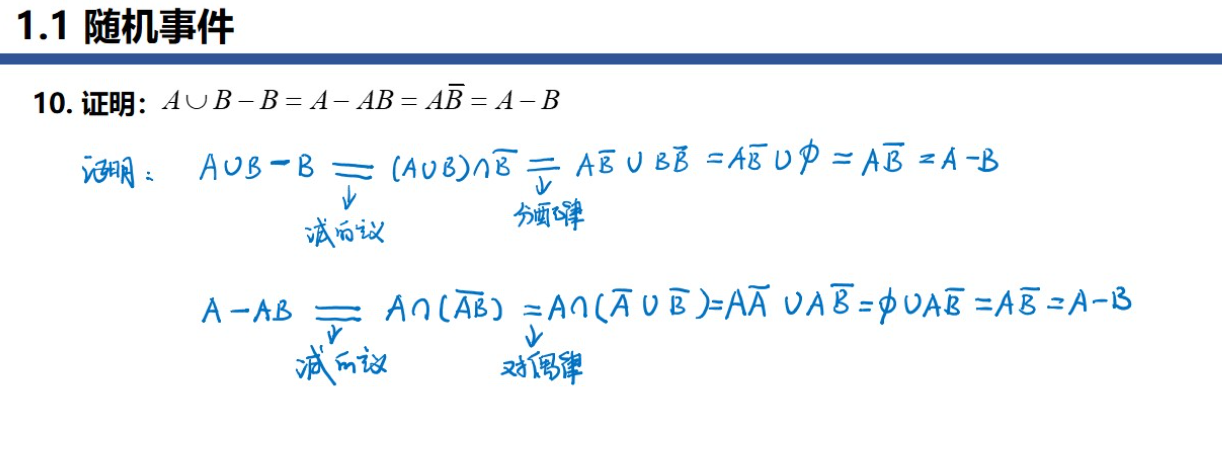 1.1 随机事件
10. 证明：A∪B−B=A−AB=AB̅=A−B
证明： A∪B−B = (A∪B)∩B̅ = AB̅ ∪ BB̅ = AB̅ ∪ φ = AB̅ = A−B
减的议 分配律
A−AB = A∩(A̅B̅) = A∩(A̅ ∪ B̅)=AA̅ ∪ AB̅ = φ∪AB̅ = AB̅ = A−B
减的议 对偶律